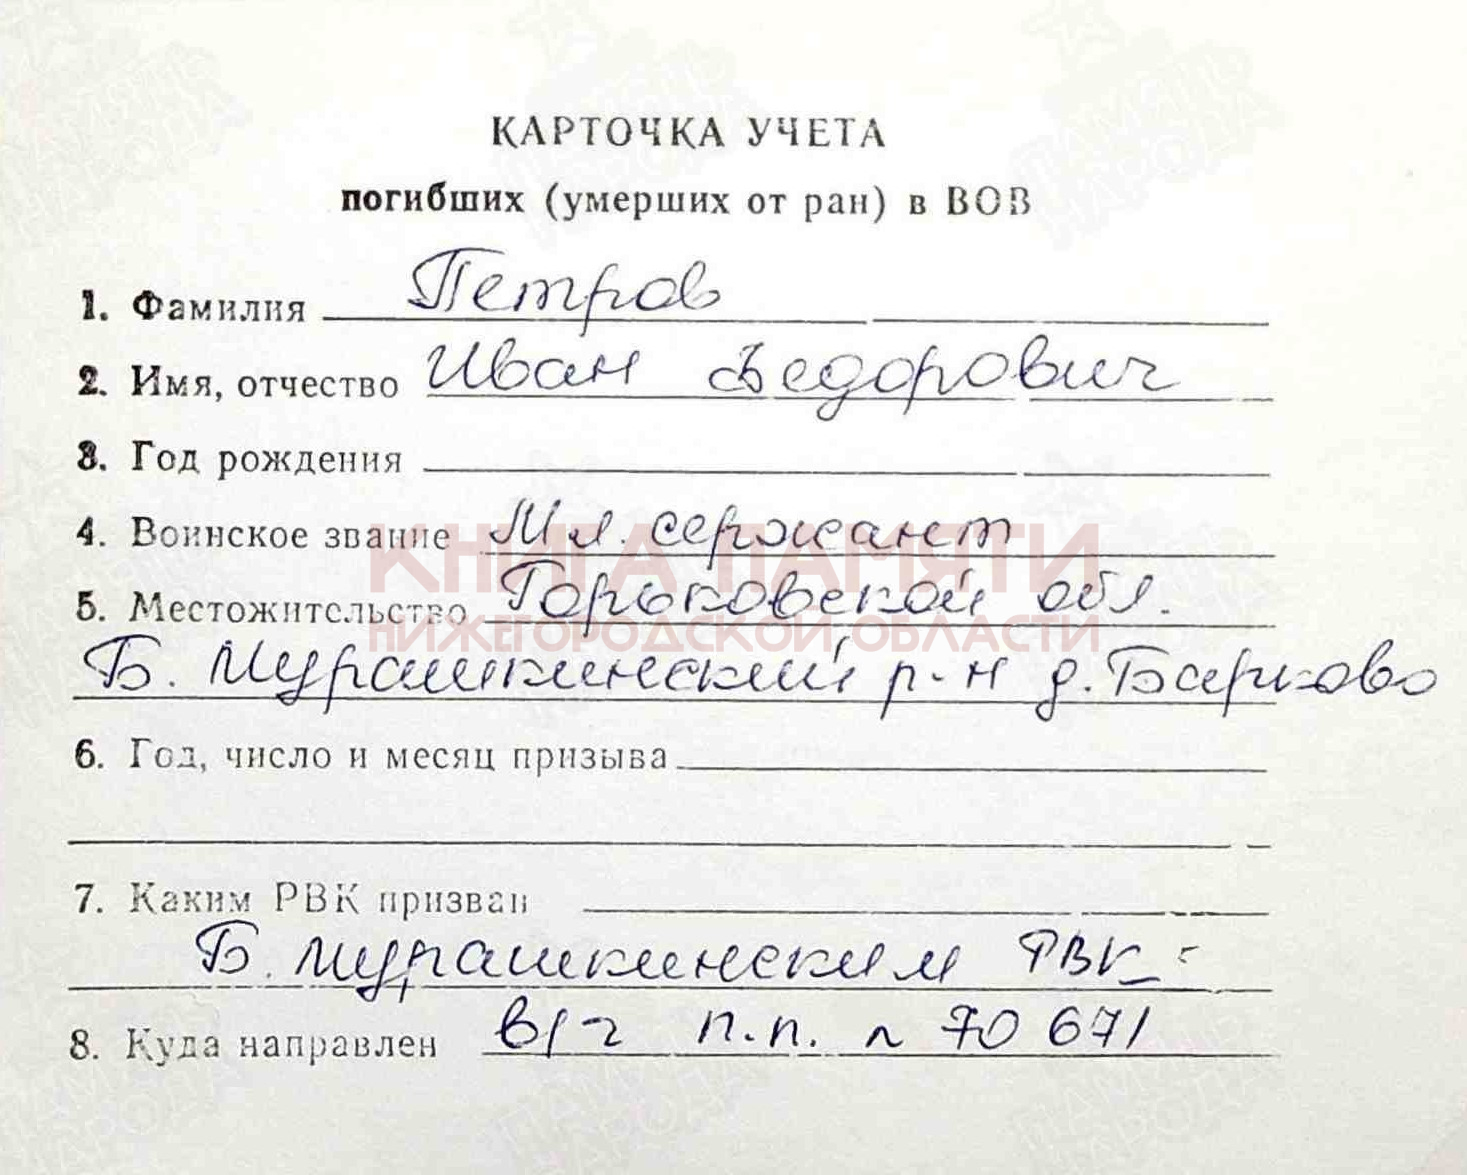 КАРТОЧКА УЧЕТА
погибших (умерших от ран) в ВОВ
1. Фамилия Петров
2. Имя, отчество Иван Федорович
3. Год рождения
4. Воинское звание Мл. сержант
КНИГА ПАМЯТИ
5. Местожительство Горьковской обл.
НИЖЕГОРОДСКОЙ ОБЛАСТИ
Б. Мурашкинский р-н д. Барково
6. Год, число и месяц призыва
7. Каким РВК призван
Б. Мурашкинским РВК
8. Куда направлен в/ч п.п. № 70671